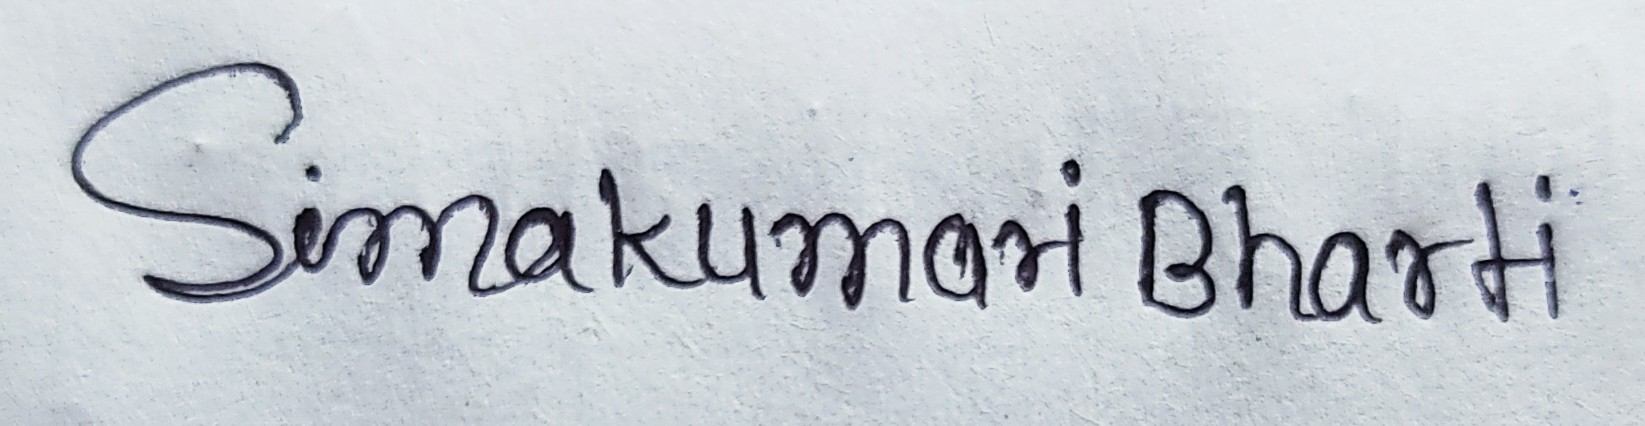 Simakumari Bharti